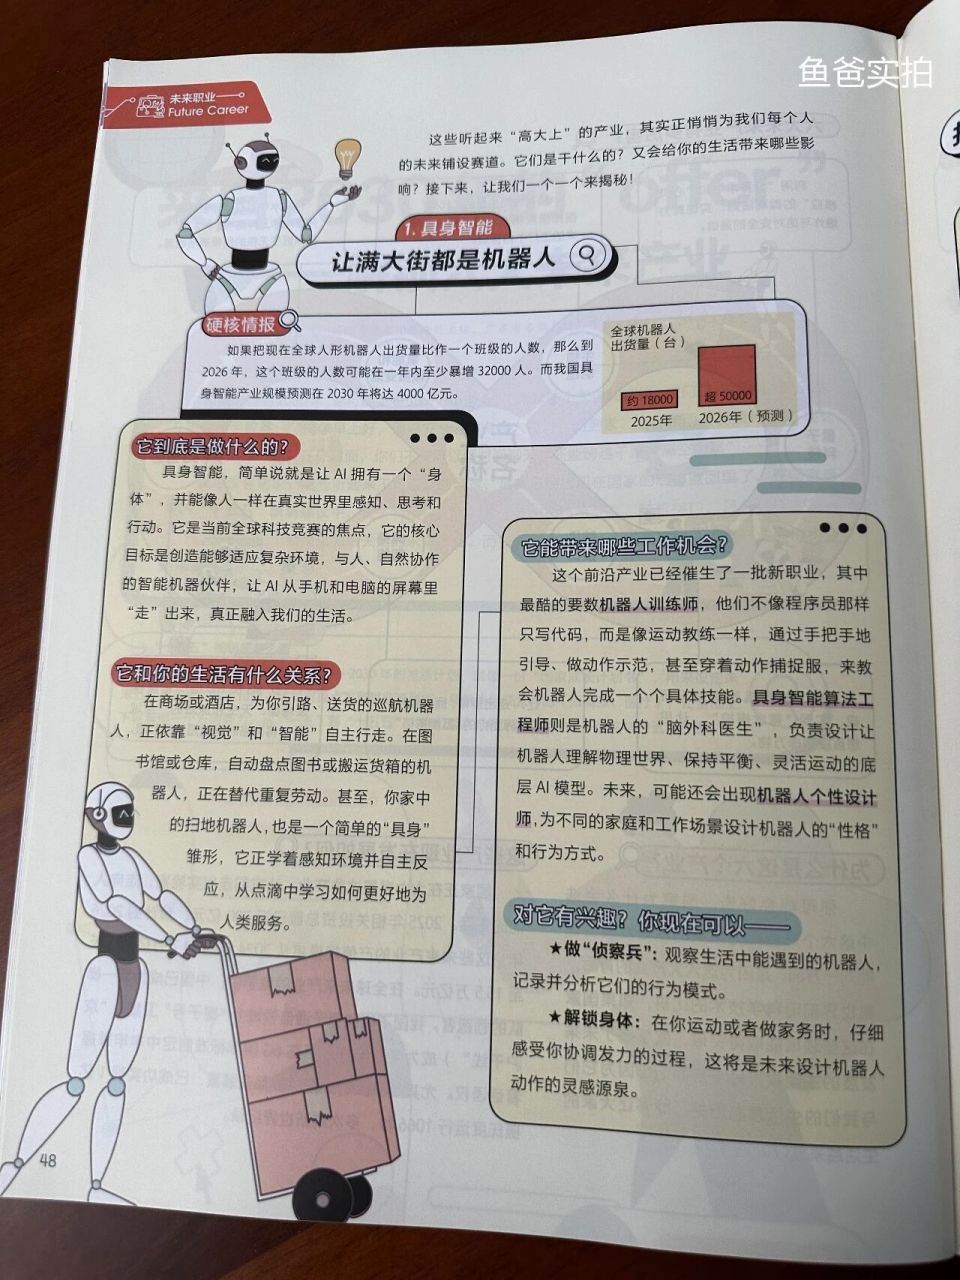 鱼爸实拍
未来职业
Future Career
这些听起来“高大上”的产业，其实正悄悄为我们每个人
的未来铺设赛道。它们是干什么的？又会给你的生活带来哪些影
响？接下来，让我们一个一个来揭秘！
1. 具身智能
让满大街都是机器人
硬核情报
如果把现在全球人形机器人出货量比作一个班级的人数，那么到
2026 年，这个班级的人数可能在一年内至少暴增 32000 人。而我国具
身智能产业规模预测在 2030 年将达 4000 亿元。
全球机器人
出货量（台）
约 18000
超 50000
2025年
2026年（预测）
它到底是做什么的？
具身智能，简单说就是让 AI 拥有一个“身
体”，并能像人一样在真实世界里感知、思考和
行动。它是当前全球科技竞赛的焦点，它的核心
目标是创造能够适应复杂环境，与人、自然协作
的智能机器伙伴，让 AI 从手机和电脑的屏幕里
“走”出来，真正融入我们的生活。
它和你的生活有什么关系？
在商场或酒店，为你引路、送货的巡航机器
人，正依靠“视觉”和“智能”自主行走。在图
书馆或仓库，自动盘点图书或搬运货箱的机
器人，正在替代重复劳动。甚至，你家中
的扫地机器人，也是一个简单的“具身”
雏形，它正学着感知环境并自主反
应，从点滴中学习如何更好地为
人类服务。
它能带来哪些工作机会？
这个前沿产业已经催生了一批新职业，其中
最酷的要数机器人训练师，他们不像程序员那样
只写代码，而是像运动教练一样，通过手把手地
引导、做动作示范，甚至穿着动作捕捉服，来教
会机器人完成一个个具体技能。具身智能算法工
程师则是机器人的“脑外科医生”，负责设计让
机器人理解物理世界、保持平衡、灵活运动的底
层 AI 模型。未来，可能还会出现机器人个性设计
师，为不同的家庭和工作场景设计机器人的“性格”
和行为方式。
对它有兴趣？你现在可以——
★做“侦察兵”：观察生活中能遇到的机器人，
记录并分析它们的行为模式。
★解锁身体：在你运动或者做家务时，仔细
感受你协调发力的过程，这将是未来设计机器人
动作的灵感源泉。
48